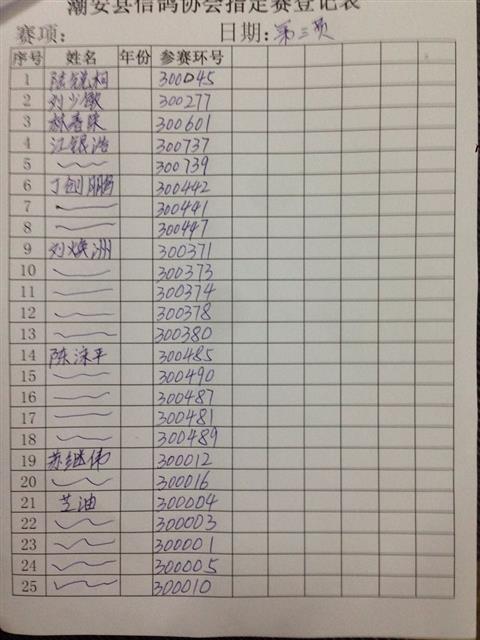 潮安县信鸽协会指定赛登记表
赛项: 日期: 第三页
序号 姓名 年份 参赛环号
1 陆锐桐 300045
2 刘少敏 300277
3 林春味 300601
4 江银浩 300737
5 300739
6 丁创鹏 300442
7 300441
8 300447
9 刘焕洲 300371
10 300373
11 300374
12 300378
13 300380
14 陈泽平 300485
15 300490
16 300487
17 300481
18 300489
19 苏继伟 300012
20 300016
21 芝油 300004
22 300003
23 300001
24 300005
25 300010